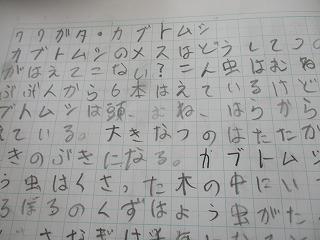 クワガタ・カブトムシ
カブトムシのメスはどうしてつの
がはえてこない？こん虫はむね
ぶぶんから6本はえているけど
ブトムシは頭、むね、はらから
ている。大きなつのはたたか
きのぶきになる。カブトムシ
う虫はくさった木の中にい
るぼろのくずはよう虫がた